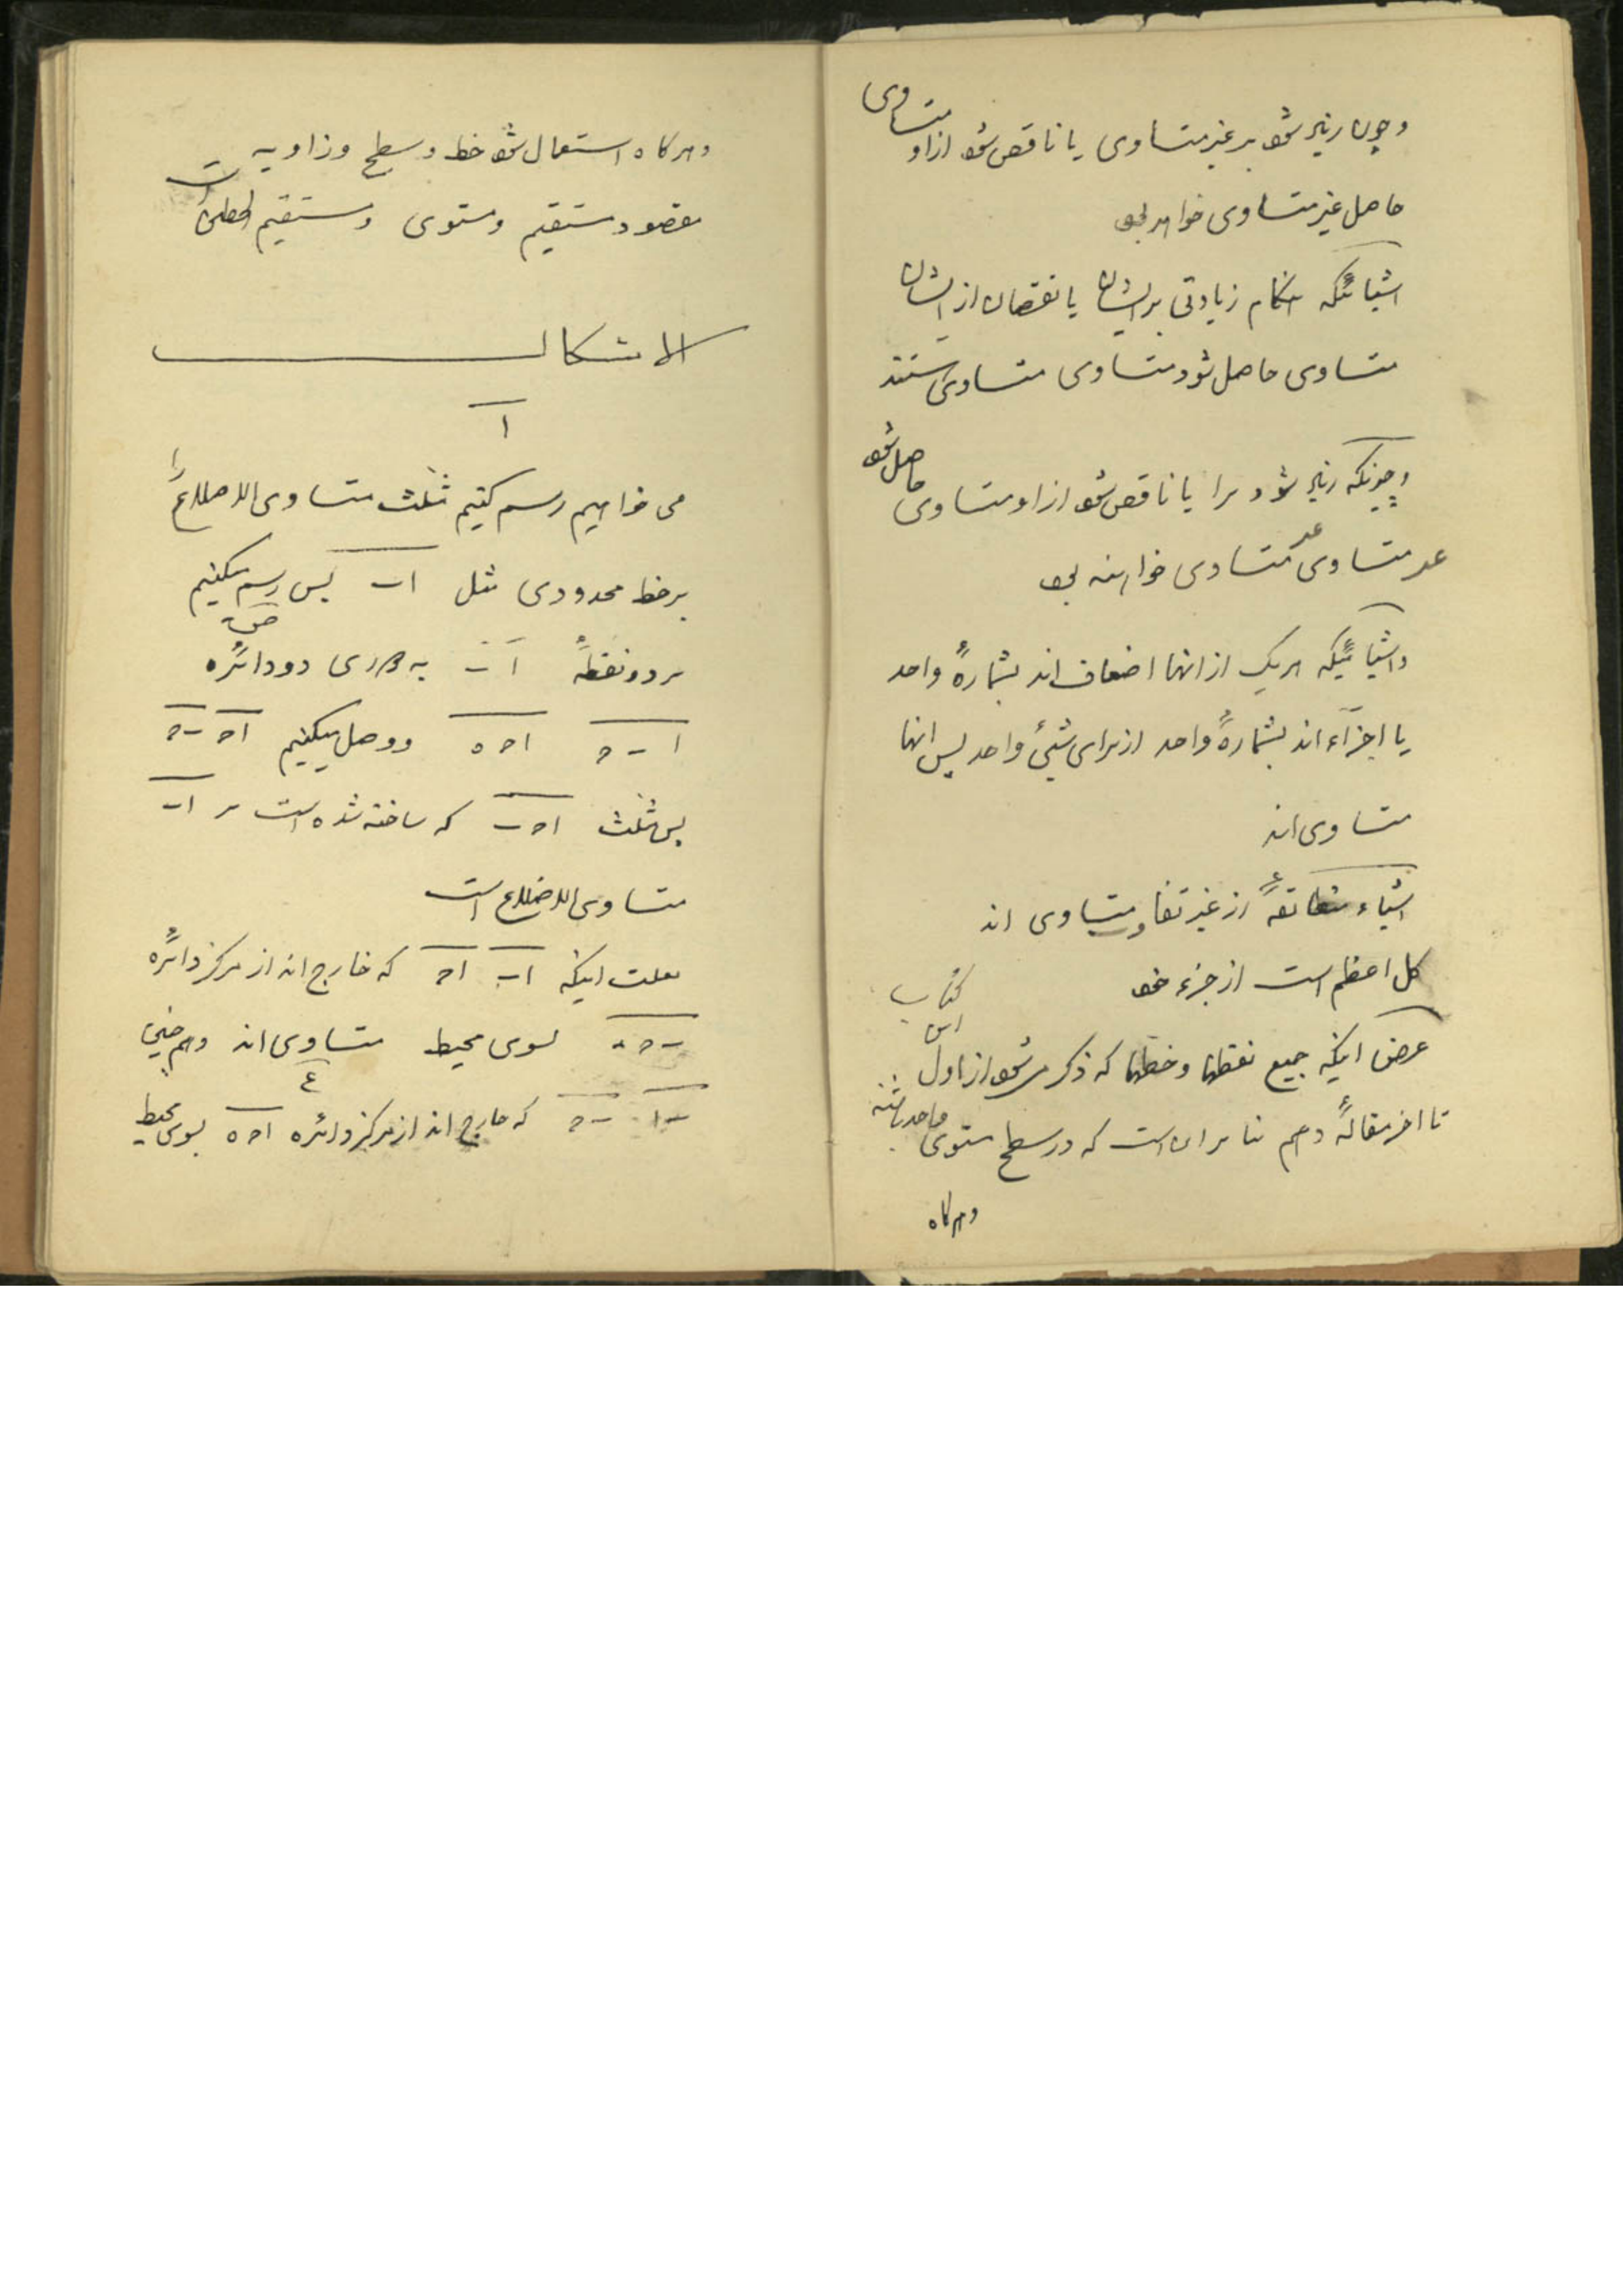 وچون زیاد شود بر غیر متساوی یا ناقص شود ازاو متساوی
حاصل غیر متساوی خواهد بود
اشیائیکه هنکام زیادتی برایشان یا نقصان از ایشان
متساوی حاصل شود متساوی متساوی هستند
وچونکه زیاد شود برا یا ناقص شود ازاو متساوی حاصل شود
غیر متساوی غیر متساوی خواهند بود
واشیائیکه هریک ازانها اضعاف اند بشمارهٔ واحد
یا اجزآء اند بشمارهٔ واحد از برای شیئ واحد پس انها
متساوی اند
اشیاء متطابقهٔ از غیر تفاوت متساوی اند
کل اعظم است از جزء خود
غرض اینکه جمیع نقطها وخطها که ذکر می شود از اول این کتاب
تا اخر مقالهٔ دهم بنا بر ان است که در سطح مستوی واحد باشند
وهرکاه
وهرکاه استعمال شود خط وسطح وزاویه
مقصود مستقیم ومستوی ومستقیم الخطین است
الاشکال
ا
می خواهیم رسم کنیم مثلث متساوی الاضلاع را
بر خط محدودی مثل اب پس رسم میکنیم
بر دو نقطهٔ ا ب به دوری دو دائرهٔ
ا ب ح ا ح ه ووصل میکنیم اح ب ح
پس مثلث ا ح ب که ساخته شده است بر اب
متساوی الاضلاع است
بعلت اینکه اب اح که خارج اند از مرکز دائرهٔ
ب ح ه بسوی محیط متساوی اند وهم چنین
ب ا ب ح که خارج اند از مرکز دائره ا ح ه بسوی محیط